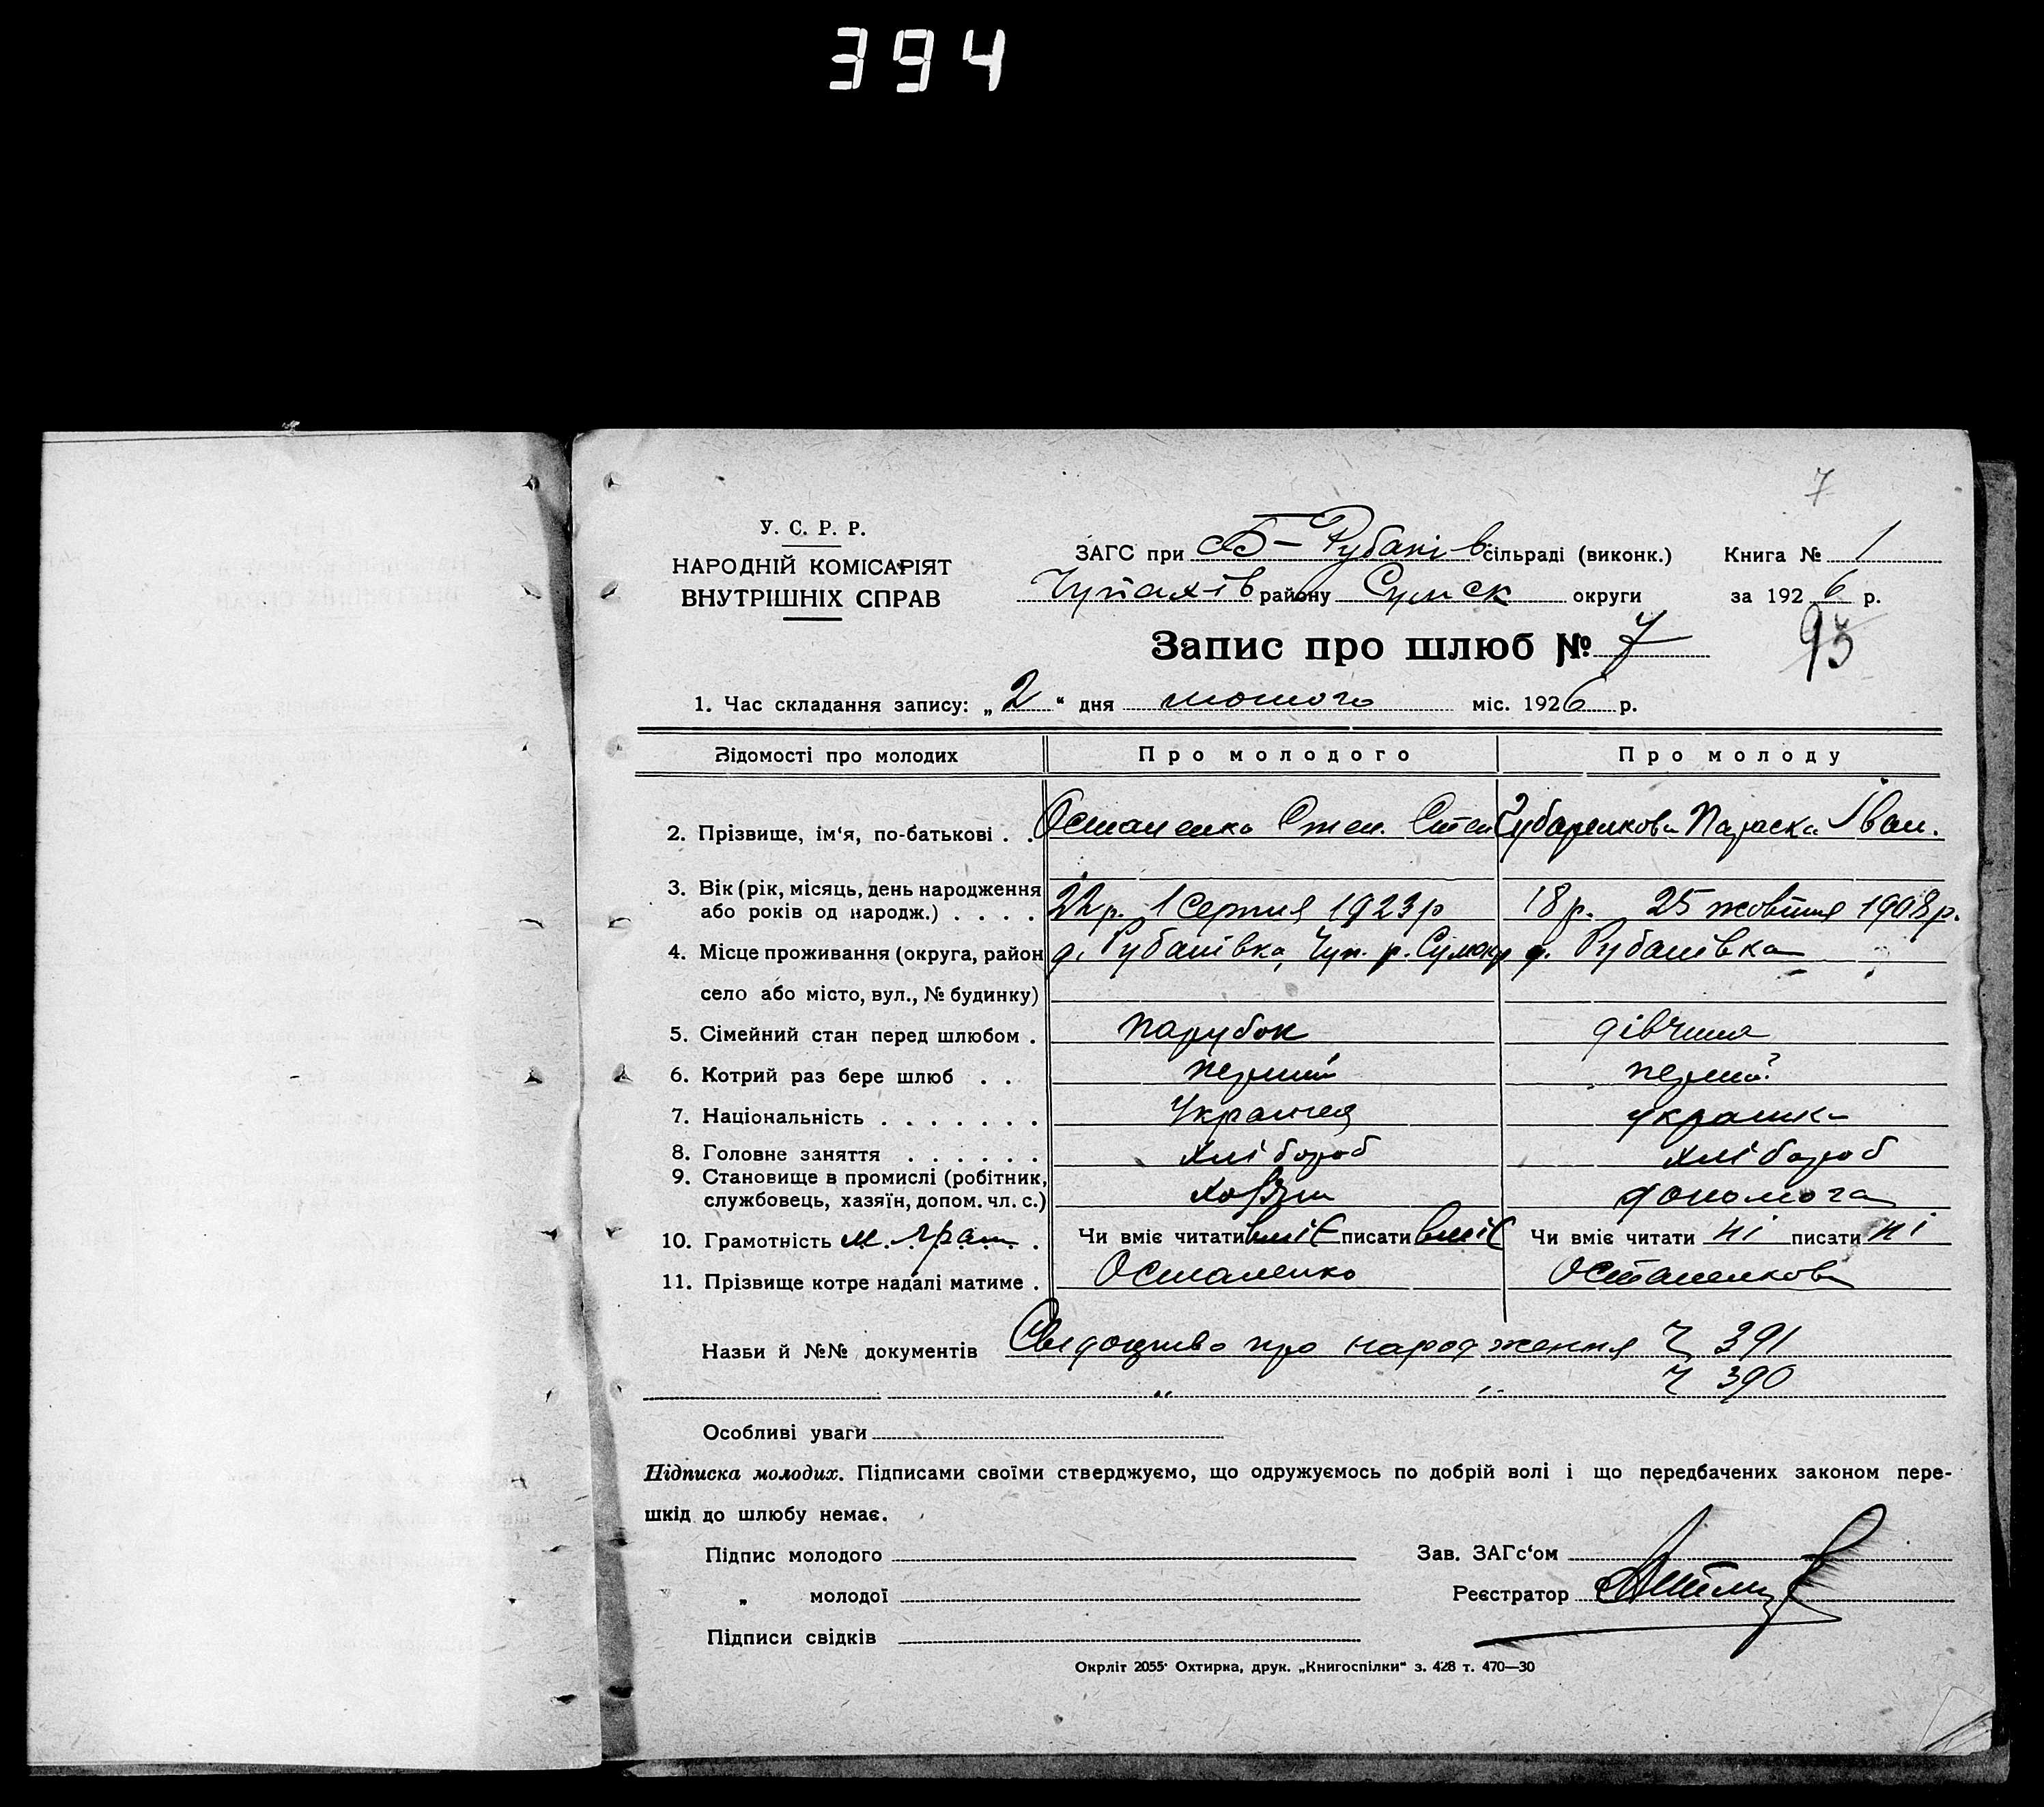 394
7
У. С. Р. Р.
НАРОДНІЙ КОМІСАРІЯТ
ВНУТРІШНІХ СПРАВ
ЗАГС при Б-Рубанів сільраді (виконк.) Книга № 1
Чупахів району Сумск округи за 1926 р.
Запис про шлюб № 7
93
1. Час складання запису: „2“ дня лютого міс. 1926 р.
Відомості про молодих Про молодого Про молоду
2. Прізвище, ім‘я, по-батькові . . Остапенко Степ. Степ Губаренкова Параска Іван.
3. Вік (рік, місяць, день народження
або років од народж.) . . . . 22 р. 1 серпня 1923 р 18 р. 25 жовтня 1908 р.
4. Місце проживання (округа, район д. Рубанівка, Чуп. р. Сумокр д. Рубанівка
село або місто, вул., № будинку)
5. Сімейний стан перед шлюбом . парубок дівчина
6. Котрий раз бере шлюб . . перший перший
7. Національність . . . . . . . Українец українка
8. Головне заняття . . . . . . хлібороб хлібороб
9. Становище в промислі (робітник,
службовець, хазяїн, допом. чл. с.) хозяин допомога
10. Грамотність м. грам Чи вміє читати вміє писати вміє Чи вміє читати ні писати ні
11. Прізвище котре надалі матиме . Остапенко Остапенкова
Назви й №№ документів Свідоцтво про народження Ч 391
„ „ Ч 390
Особливі уваги
Підписка молодих. Підписами своїми стверджуємо, що одружуємось по добрій волі і що передбачених законом пере-
шкід до шлюбу немає.
Підпис молодого Зав. ЗАГс‘ом
„ молодої Реєстратор
Підписи свідків
Окрліт 2055· Охтирка, друк. „Книгоспілки“ з. 428 т. 470—30